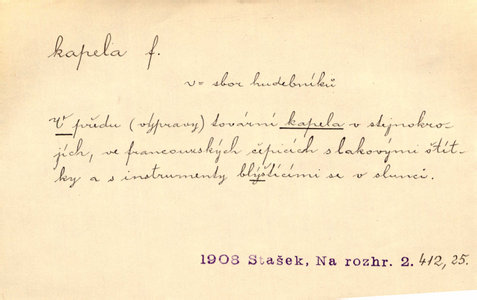 kapela f.
v = sbor hudebníků
V předu (výpravy) tovární kapela v stejnokro-
jích, ve francouzských čepicích s lakovými štít-
ky a s instrumenty blýštícími se v slunci.
1908 Stašek, Na rozhr. 2. 412, 25.